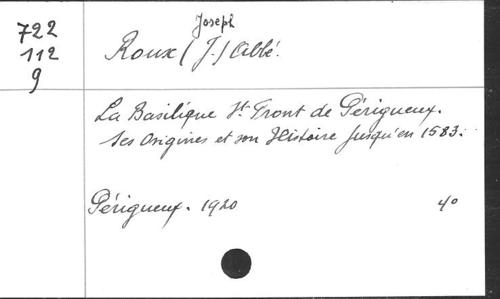 722
112
9
Joseph
Roux (J.) Abbé.
La Basilique St Front de Périgueux.
Ses Origines et son Histoire jusqu'en 1583.
Périgueux. 1920 4o